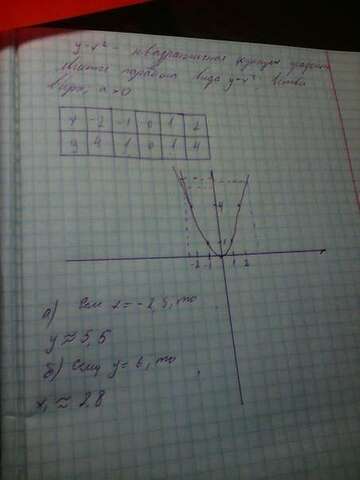 y=x² - квадратичная функция график
является парабола вида y=x² ветви
вверх, a>0
x -2 -1 0 1 2
y 4 1 0 1 4
4
1
-2 -1 1 2
а) Если x=-2,5, то
y≈5,5
б) Если y=6, то
x₁≈2,8